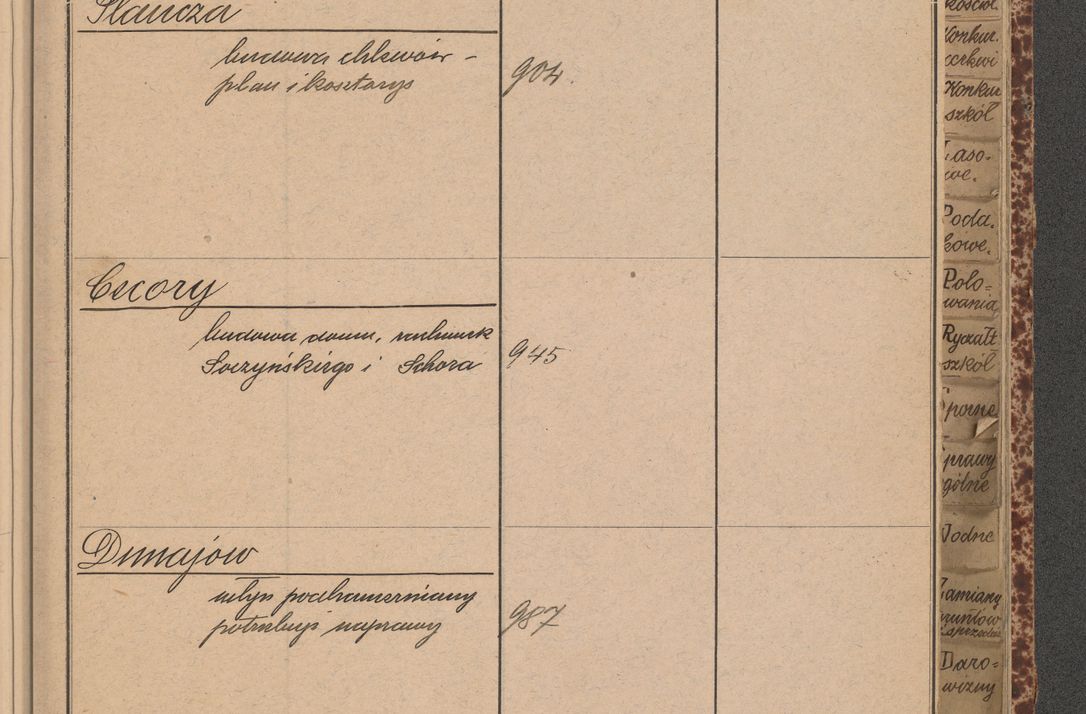 budowa chlewów -
plan i kosztorys
904.
Cecory
budowa domu, rachunek
Soczyńskiego i Schora
945
Dunajów
młyn podkamermiany
potrzebuje naprawy
987
kościel.
Konkur.
cerkwi
Konkur
szkół
Laso-
we.
Poda.
kowe.
Polo=
wania
Ryczałt
szkół
Sporne
Sprawy
ogólne
Wodne
Zamiany
gruntów
Daro=
wizny